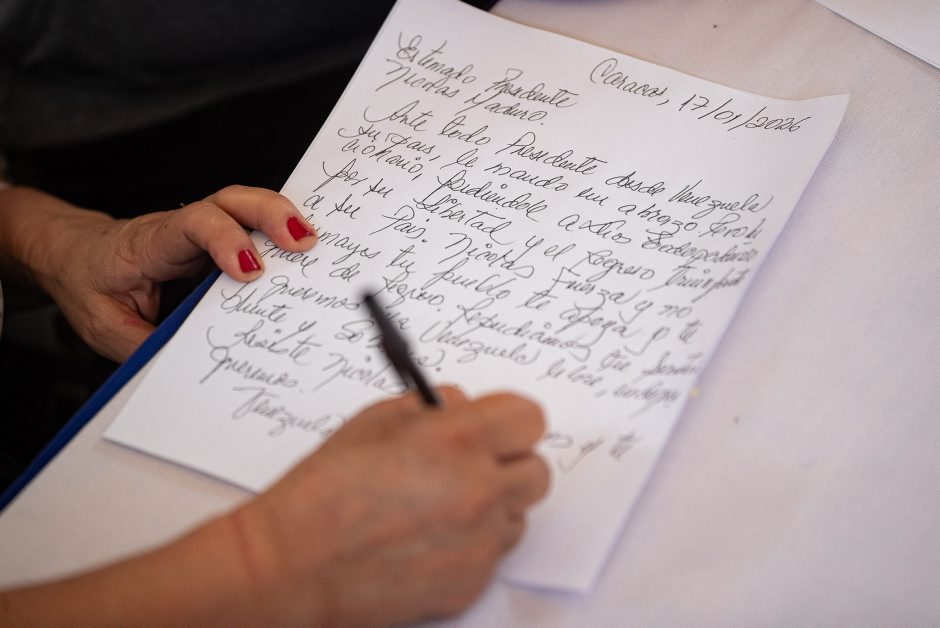 Caracas, 17/01/2026
Estimado Presidente
Nicolas Maduro.
Ante todo Presidente desde Venezuela
su pais, le mando un abrazo Revolu
cionario, pidiendole a Dios Todopoderoso
por su libertad y el regreso triunfal
a su Pais, Nicolas Fuerza y no
desmayes tu pueblo te apoya y te
quiere de regreso. Repudiamos
Queremos una Venezuela libre,
Nicolas
queremos.
Venezuela y te